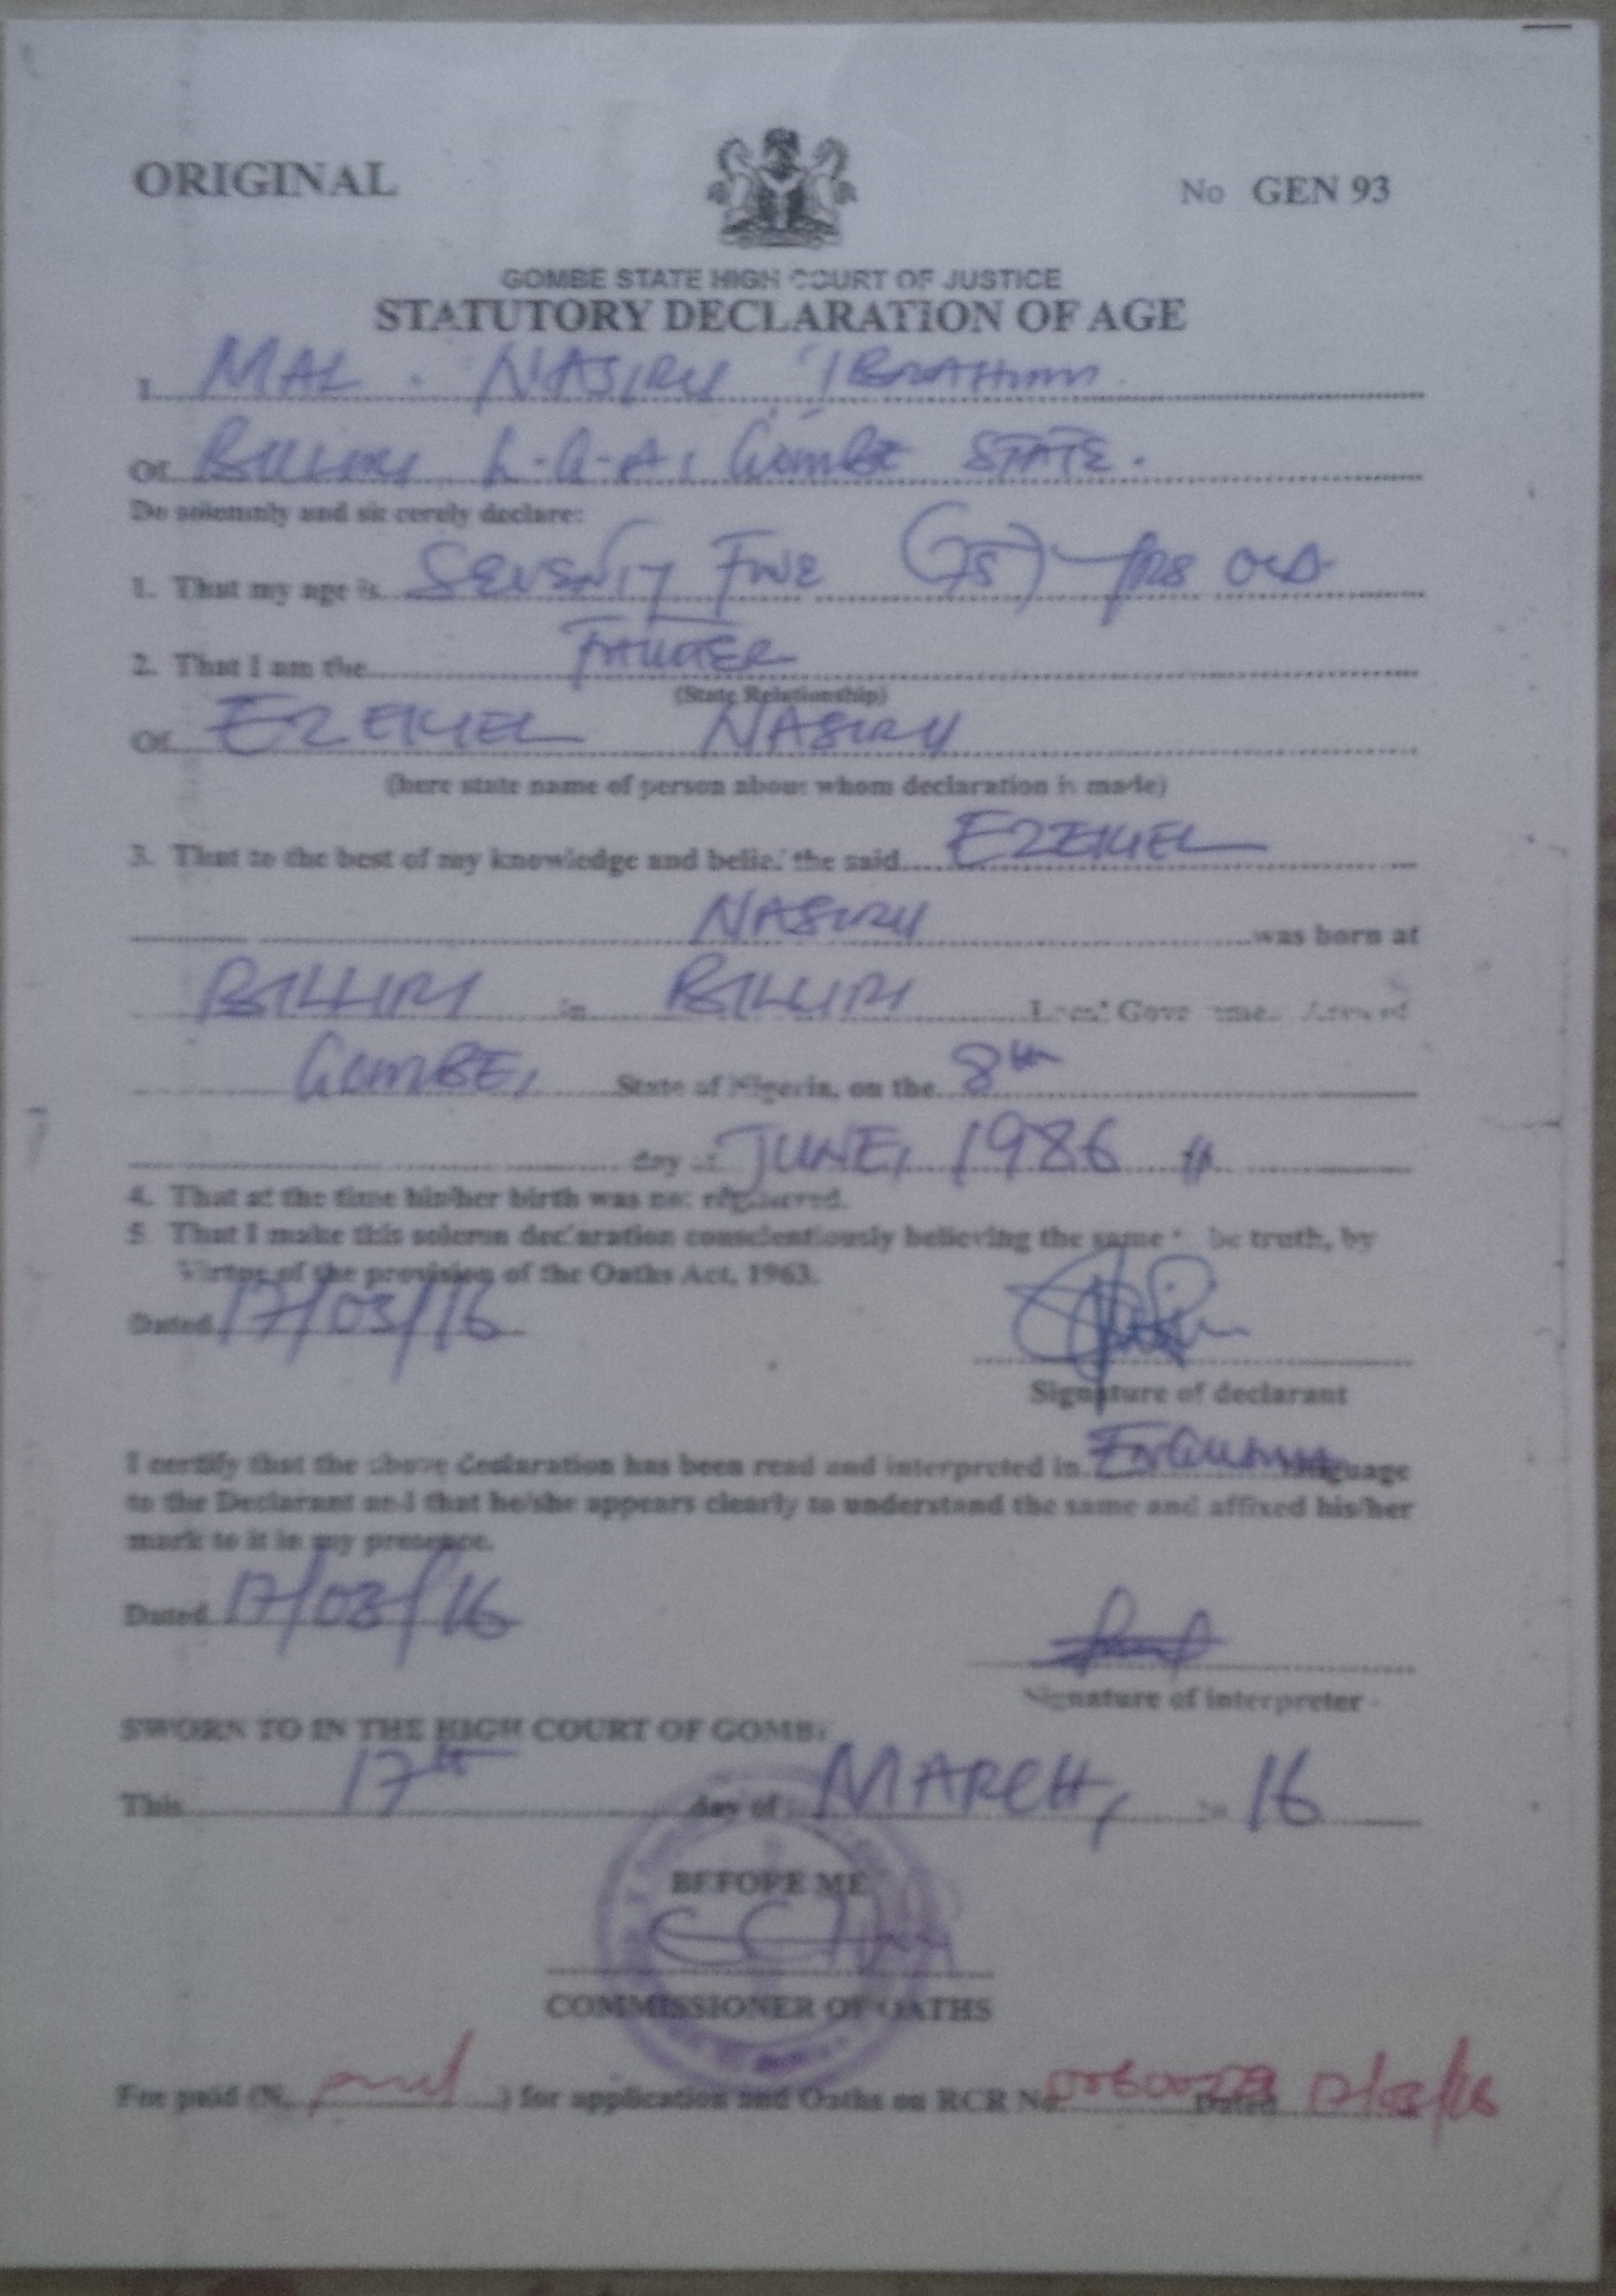 ORIGINAL
No GEN 93
GOMBE STATE HIGH COURT OF JUSTICE
STATUTORY DECLARATION OF AGE
I MAL. NASIRU IBRAHIM
Of BILLIRI L.G.A, GOMBE STATE.
Do solemnly and sincerely declare:
1. That my age is SEVENTY FIVE (75) yrs OLD
2. That I am the FATHER
(State Relationship)
Of EZEKIEL NASIRU
(here state name of person about whom declaration is made)
3. That to the best of my knowledge and belief the said EZEKIEL
NASIRU was born at
BILLIRI in BILLIRI Local Government Area of
GOMBE, State of Nigeria, on the 8th
day of JUNE, 1986
4. That at the time his/her birth was not registered.
5 That I make this solemn declaration conscientiously believing the same be truth, by
Virtue of the provision of the Oaths Act, 1963.
Dated 17/03/16
Signature of declarant
I certify that the above declaration has been read and interpreted in language
to the Declarant and that he/she appears clearly to understand the same and affixed his/her
mark to it in my presence.
Dated 17/03/16
Signature of interpreter
SWORN TO IN THE HIGH COURT OF GOMBE
This 17th day of MARCH, 16
BEFORE ME
COMMISSIONER OF OATHS
For paid (N paid ) for application and Oaths on RCR No Dated 17/03/16